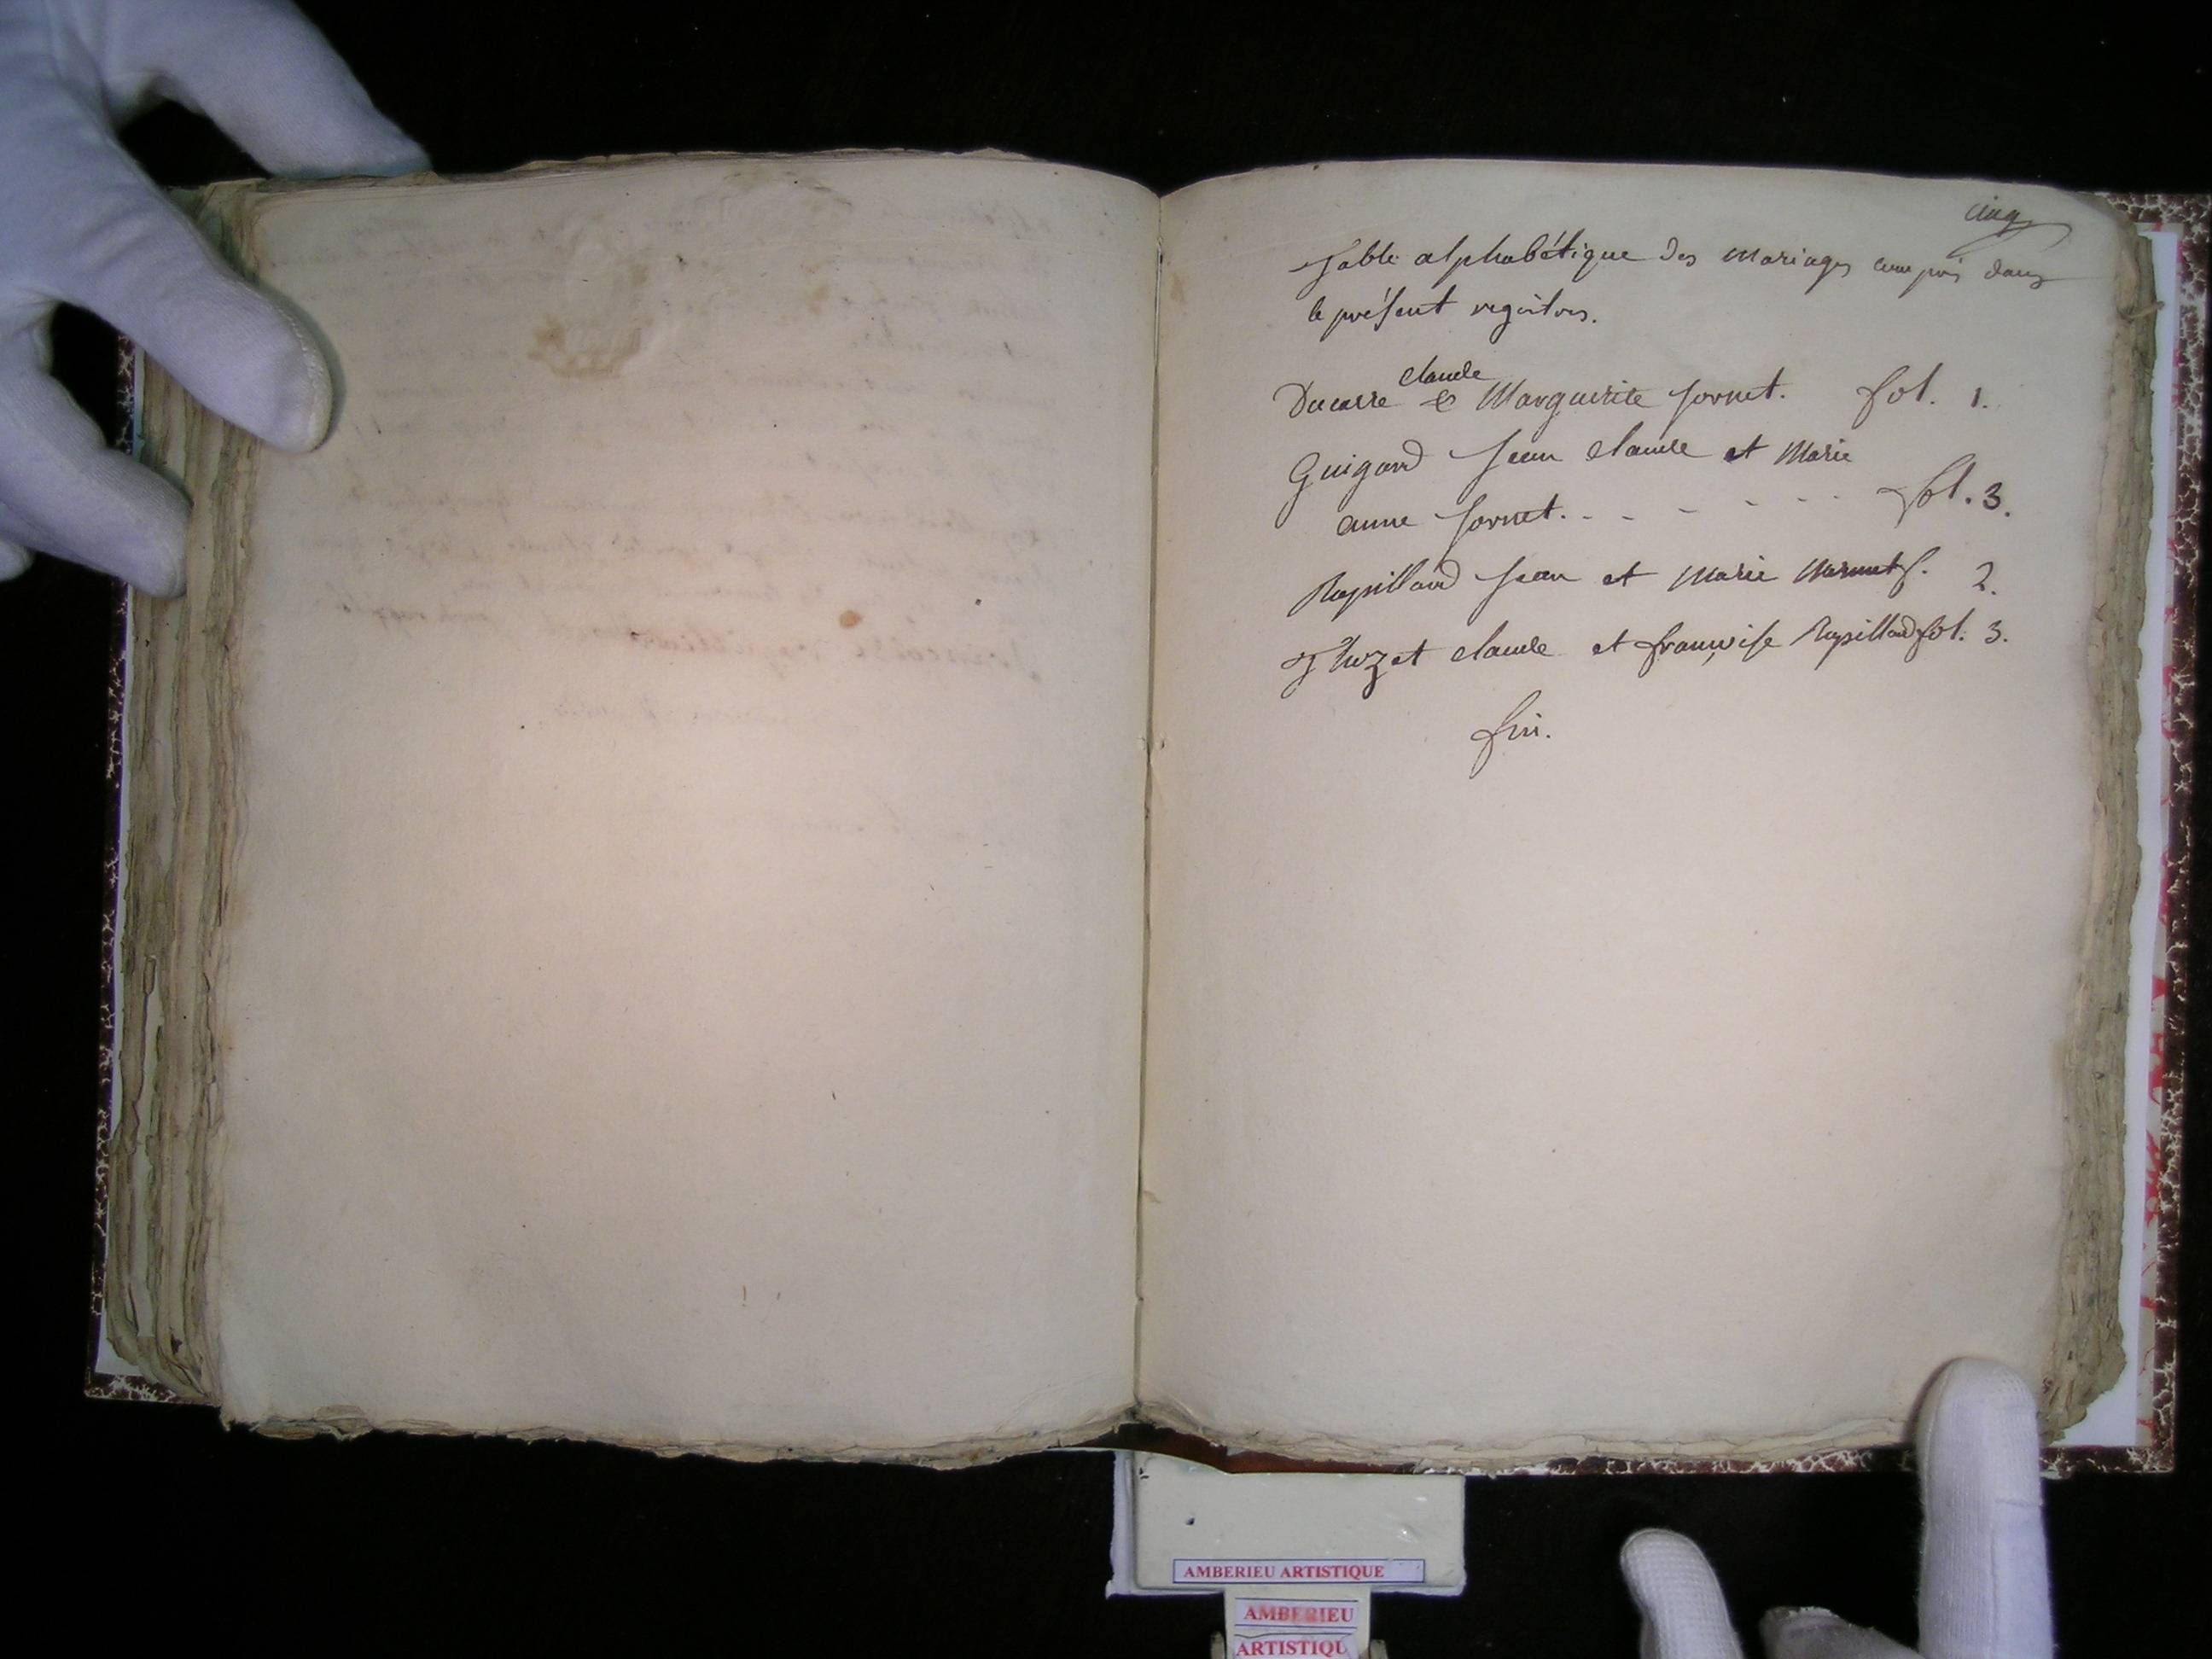 cinq
Table alphabétique des mariages compris dans
le présent registres.
claude
Ducarre & Marguerite fornet. fol. 1.
Guigard Jean Claude et Marie
anne fornet. - - - - - - fol. 3.
Rapillard Jean et Marie f. 2.
Thozet claude et françoise Rapillard fol. 3.
fin.
AMBERIEU ARTISTIQUE
AMBERIEU
ARTISTIQU